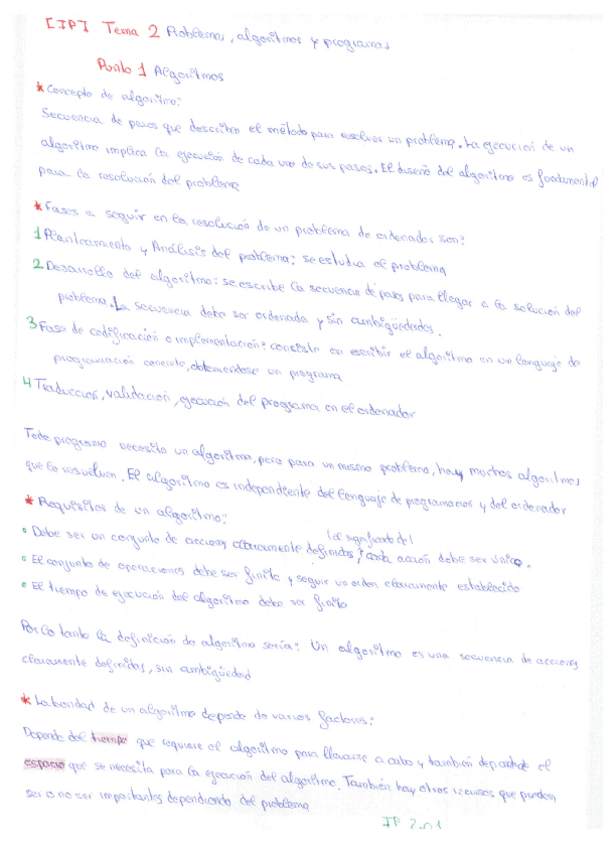 [IP] Tema 2 Problemas, algoritmos y programas
Punto 1 Algoritmos
* Concepto de algoritmo:
Secuencia de pasos que describen el método para resolver un problema. La ejecución de un
algoritmo implica la ejecución de cada uno de sus pasos. El diseño del algoritmo es fundamental
para la resolución del problema
* Fases a seguir en la resolución de un problema de ordenador son:
1 Planteamiento y Análisis del problema: se estudia el problema
2 Desarrollo del algoritmo: se escribe la secuencia de pasos para llegar a la solución del
problema. La secuencia debe ser ordenada y sin ambigüedades.
3 Fase de codificación o implementación: consiste en escribir el algoritmo en un lenguaje de
programación concreto, obteniéndose un programa
4 Traducción, validación, ejecución del programa en el ordenador
Todo programa necesita un algoritmo, pero para un mismo problema, hay muchos algoritmos
que lo resuelven. El algoritmo es independiente del lenguaje de programación y del ordenador
* Requisitos de un algoritmo:
• Debe ser un conjunto de acciones claramente definidas, (el significado de) cada acción debe ser único.
• El conjunto de operaciones debe ser finito y seguir un orden claramente establecido
• El tiempo de ejecución del algoritmo debe ser finito
Por lo tanto la definición de algoritmo sería: Un algoritmo es una secuencia de acciones
claramente definidas, sin ambigüedad
* La bondad de un algoritmo depende de varios factores:
Depende del tiempo que requiere el algoritmo para llevarse a cabo y también depende el
espacio que se necesita para la ejecución del algoritmo. También hay otros recursos que pueden
ser o no ser importantes dependiendo del problema
IP 2.01